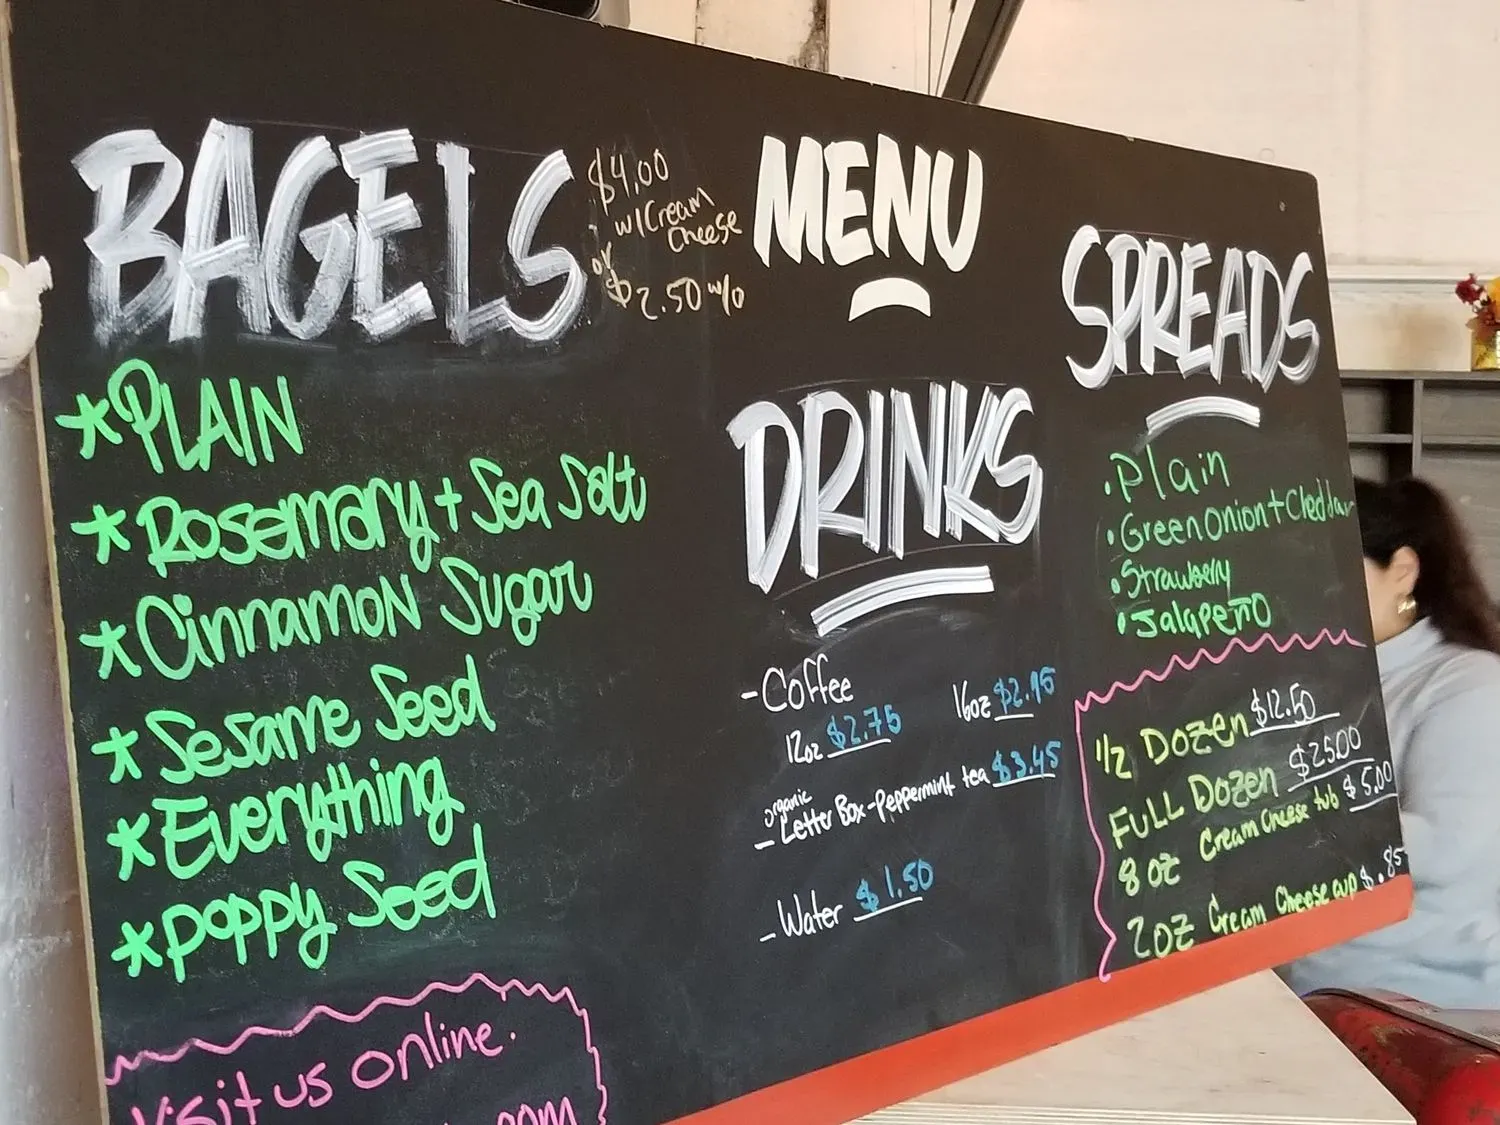 BAGELS
$4.00
w/Cream
Cheese
or
$2.50 w/o
* PLAIN
* Rosemary + Sea Salt
* Cinnamon Sugar
* Sesame Seed
* Everything
* Poppy Seed
Visit us online.
.com
MENU
DRINKS
- Coffee
12oz $2.75 16oz $2.95
organic
- Letter Box - Peppermint tea $3.45
- Water $1.50
SPREADS
• Plain
• Green Onion + Cheddar
• Strawberry
• Jalapeño
1/2 Dozen $12.50
FULL Dozen $25.00
8 oz Cream Cheese tub $5.00
2oz Cream Cheese cup $.85